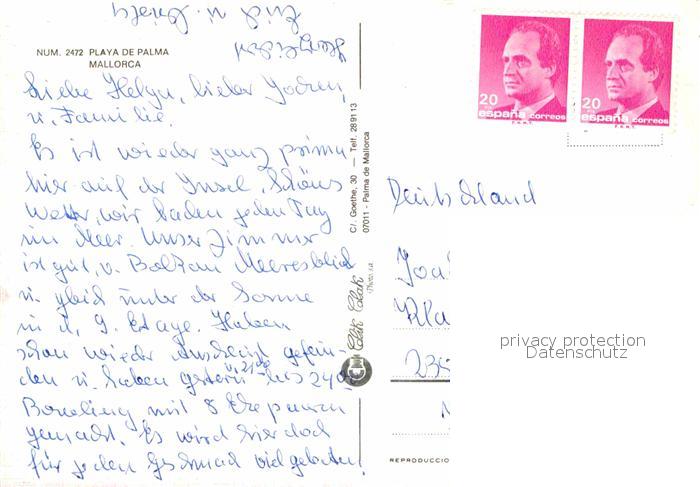 NUM. 2472 PLAYA DE PALMA
MALLORCA
Liebe Helga, lieber Jochen,
u. Familie.
Es ist wieder ganz prima
hier auf der Insel. Schönes
Wetter, wir baden jeden Tag
im Meer. Unser Zimmer
ist gut, u. Balkon Meeresblick
u. gleich unter der Sonne
in d. 9. Etage. Haben
schon wieder Anschluß gefun-
den u. haben gestern bis 24 00
Bowling mit 8 Ehepaaren
gemacht. Es wird hier doch
für jeden Geschmack viel geboten!
Herzlichst
C/. Goethe, 30 — Telf. 289113
07011 - Palma de Mallorca
Clik Clak
20
españa correos
F.N.M.T.
20
españa correos
F.N.M.T.
Deutschland
privacy protection
Datenschutz
REPRODUCCIO